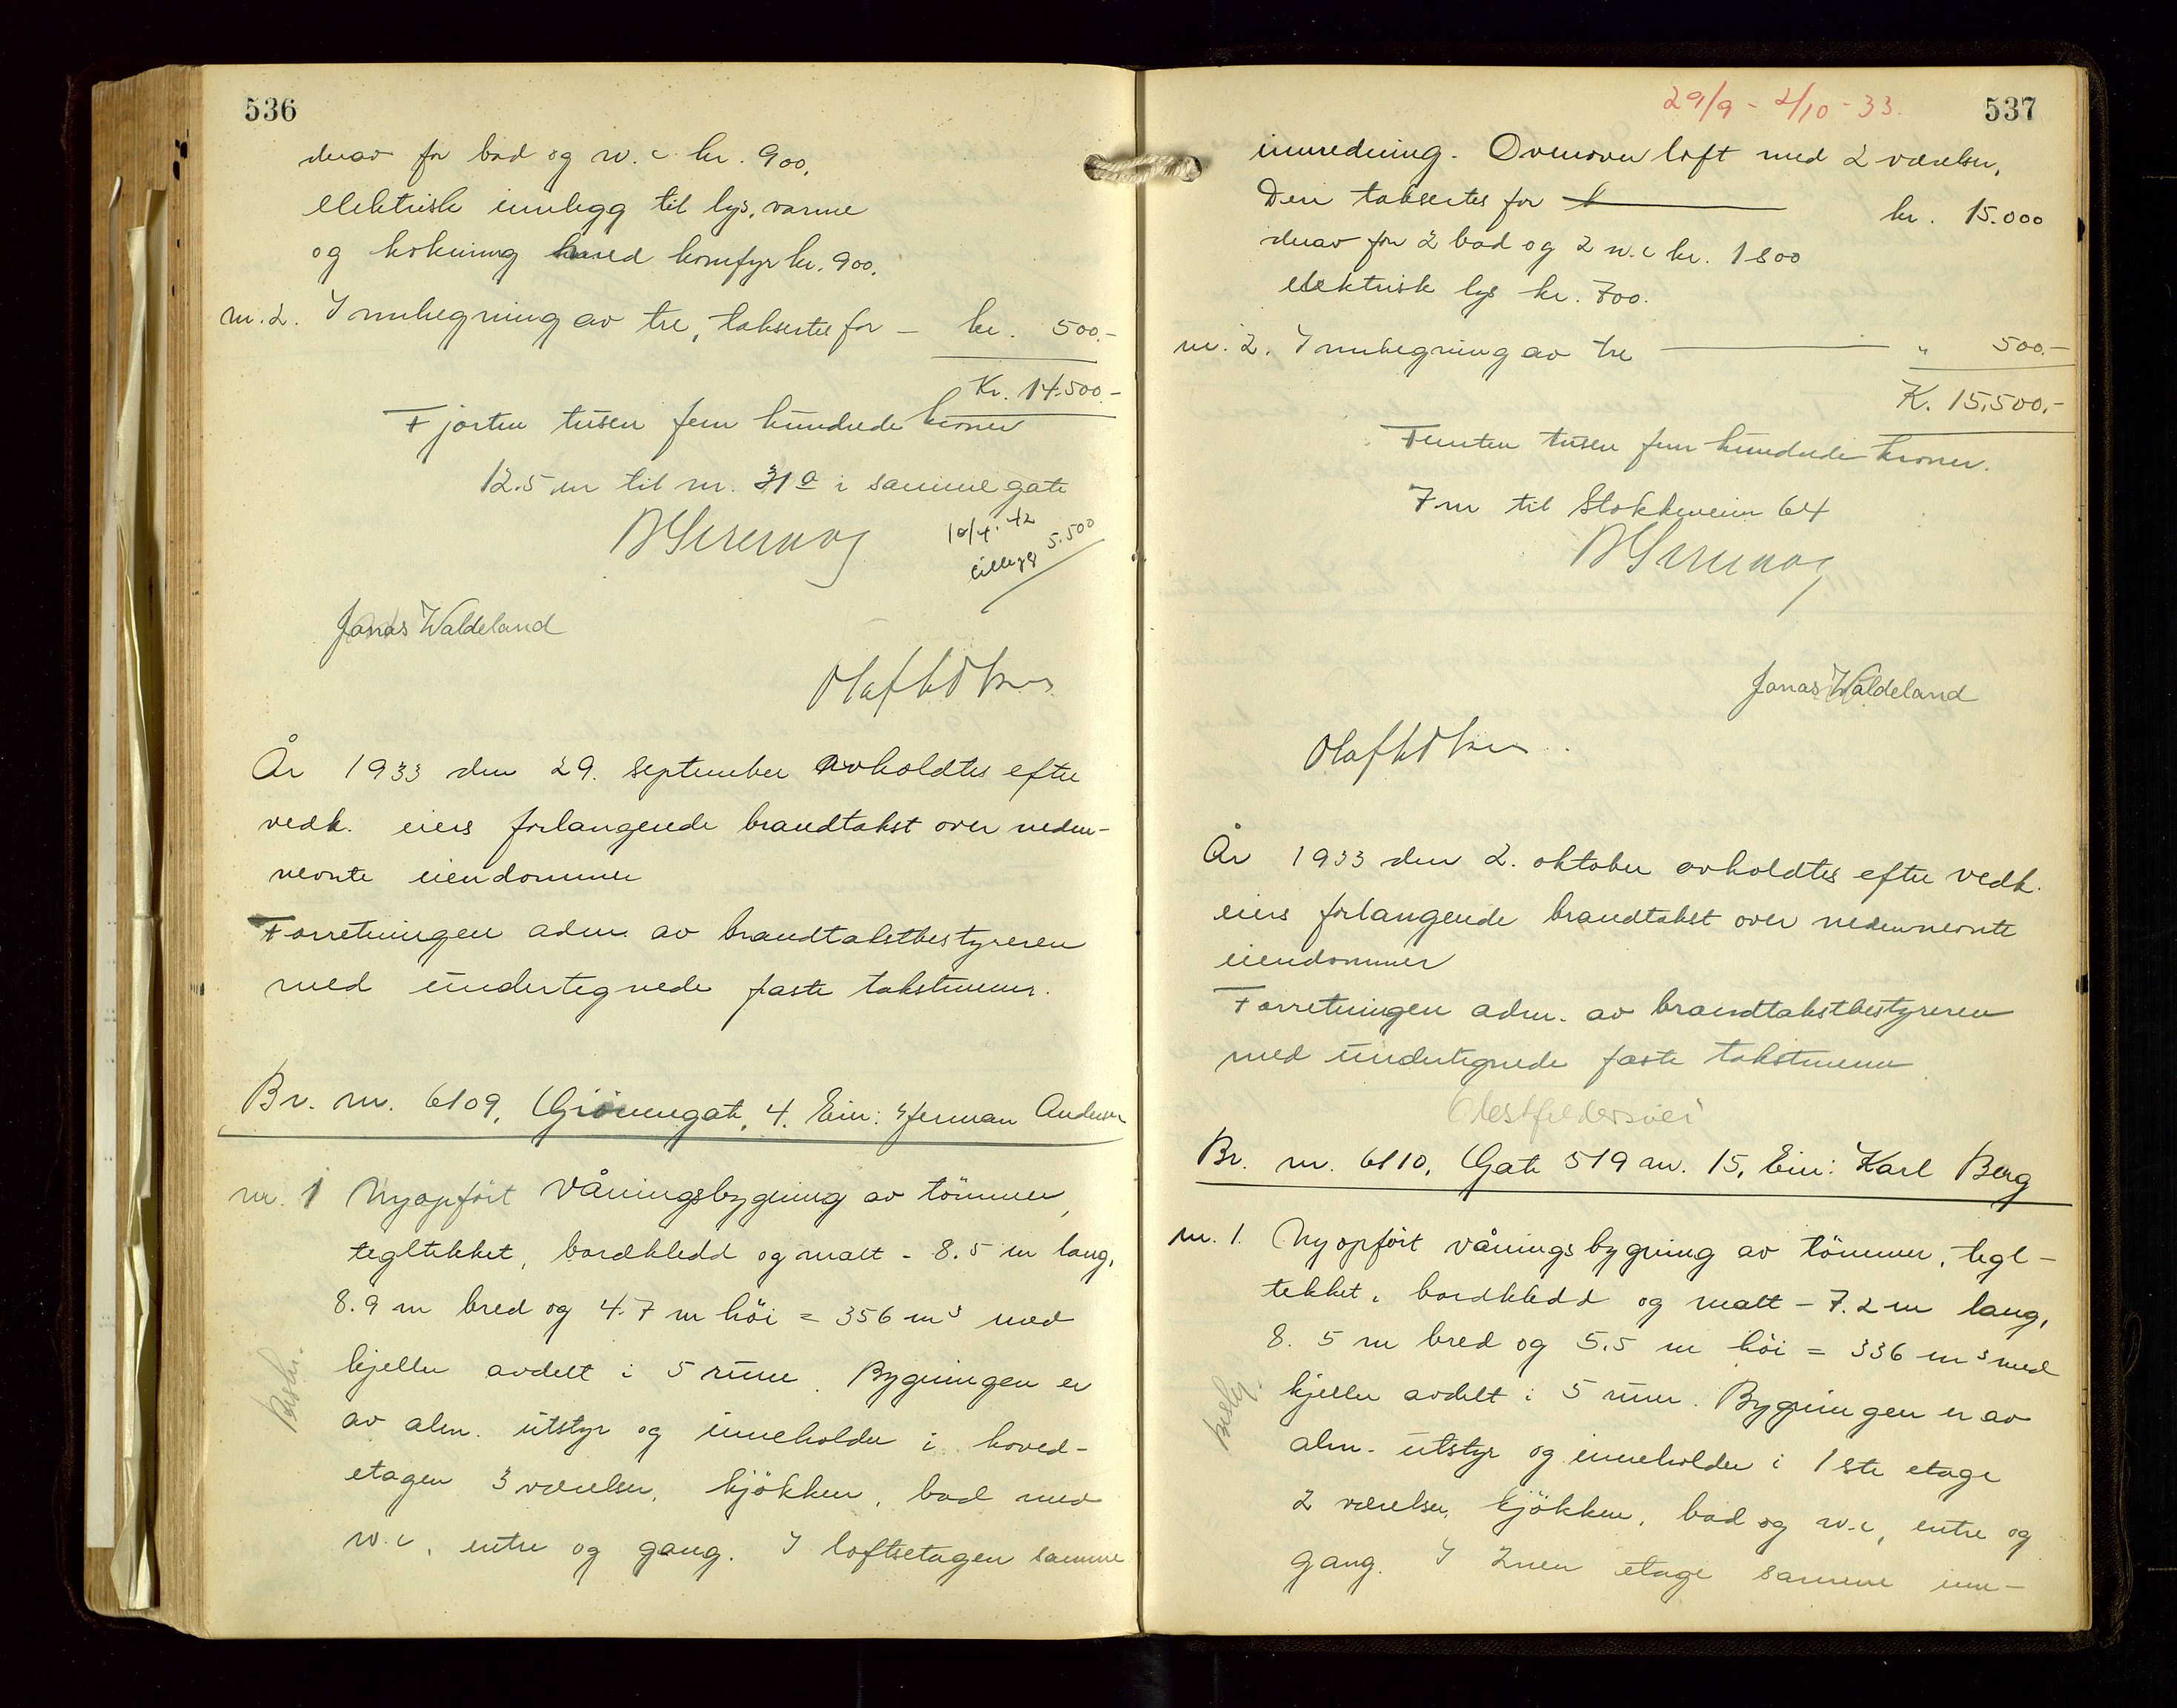 536
derav for bad og w.c. kr. 900,
elektrisk innlegg til lys, varme
og kokning med komfyr kr. 900.
nr. 2. Innhegning av tre, taksertes for – kr. 500.-
Kr. 14.500.-
Fjorten tusen fem hundrede kroner
12.5 m til nr. 31a i samme gate
10/4. 42
tillegg 5.500
Jonas Waldeland
År 1933 den 29. september avholdtes efter
vedk. eiers forlangende brandtakst over neden-
nevnte eiendommer
Forretningen adm. av brandtakstbestyreren
med undertegnede faste takstmenn.
Br. nr. 6109, Grönnegate, 4. Eier: Herman Andersen
nr. 1 Nyopfört våningsbygning av tömmer,
tegltekket, bordkledd og malt - 8.5 m lang,
8.9 m bred og 4.7 m höi = 356 m³ med
kjeller avdelt i 5 rum. Bygningen er
av alm. utstyr og inneholder i hoved-
etagen 3 værelser, kjökken, bad med
w.c, entre og gang. I loftsetagen samme
Beskr.
29/9 - 2/10 - 33.
537
innredning. Ovenover loft med 2 værelser,
Den taksertes for kr. 15.000
derav for 2 bad og 2 w.c kr. 1800
elektrisk lys kr. 700.
nr. 2. Innhegning av tre " 500.-
K. 15,500,-
Femten tusen fem hundrede kroner.
7 m til Stokkeveien 64
Jonas Waldeland
År 1933 den 2. oktober avholdtes efter vedk.
eiers forlangende brandtakst over nedennevnte
eiendommer
Forretningen adm. av brandtakstbestyreren
med undertegnede faste takstmenn
Br. nr. 6110, Gate 519 nr. 15, Eier: Karl Berg
nr. 1. Nyopfört våningsbygning av tömmer, tegl-
tekket, bordkledd og malt - 7.2 m lang,
8.5 m bred og 5.5 m höi = 336 m³ med
kjeller avdelt i 5 rum. Bygningen er av
alm. utstyr og inneholder i 1ste etage
2 værelser, kjökken, bad og w.c, entre og
gang. I 2nen etage samme inn-